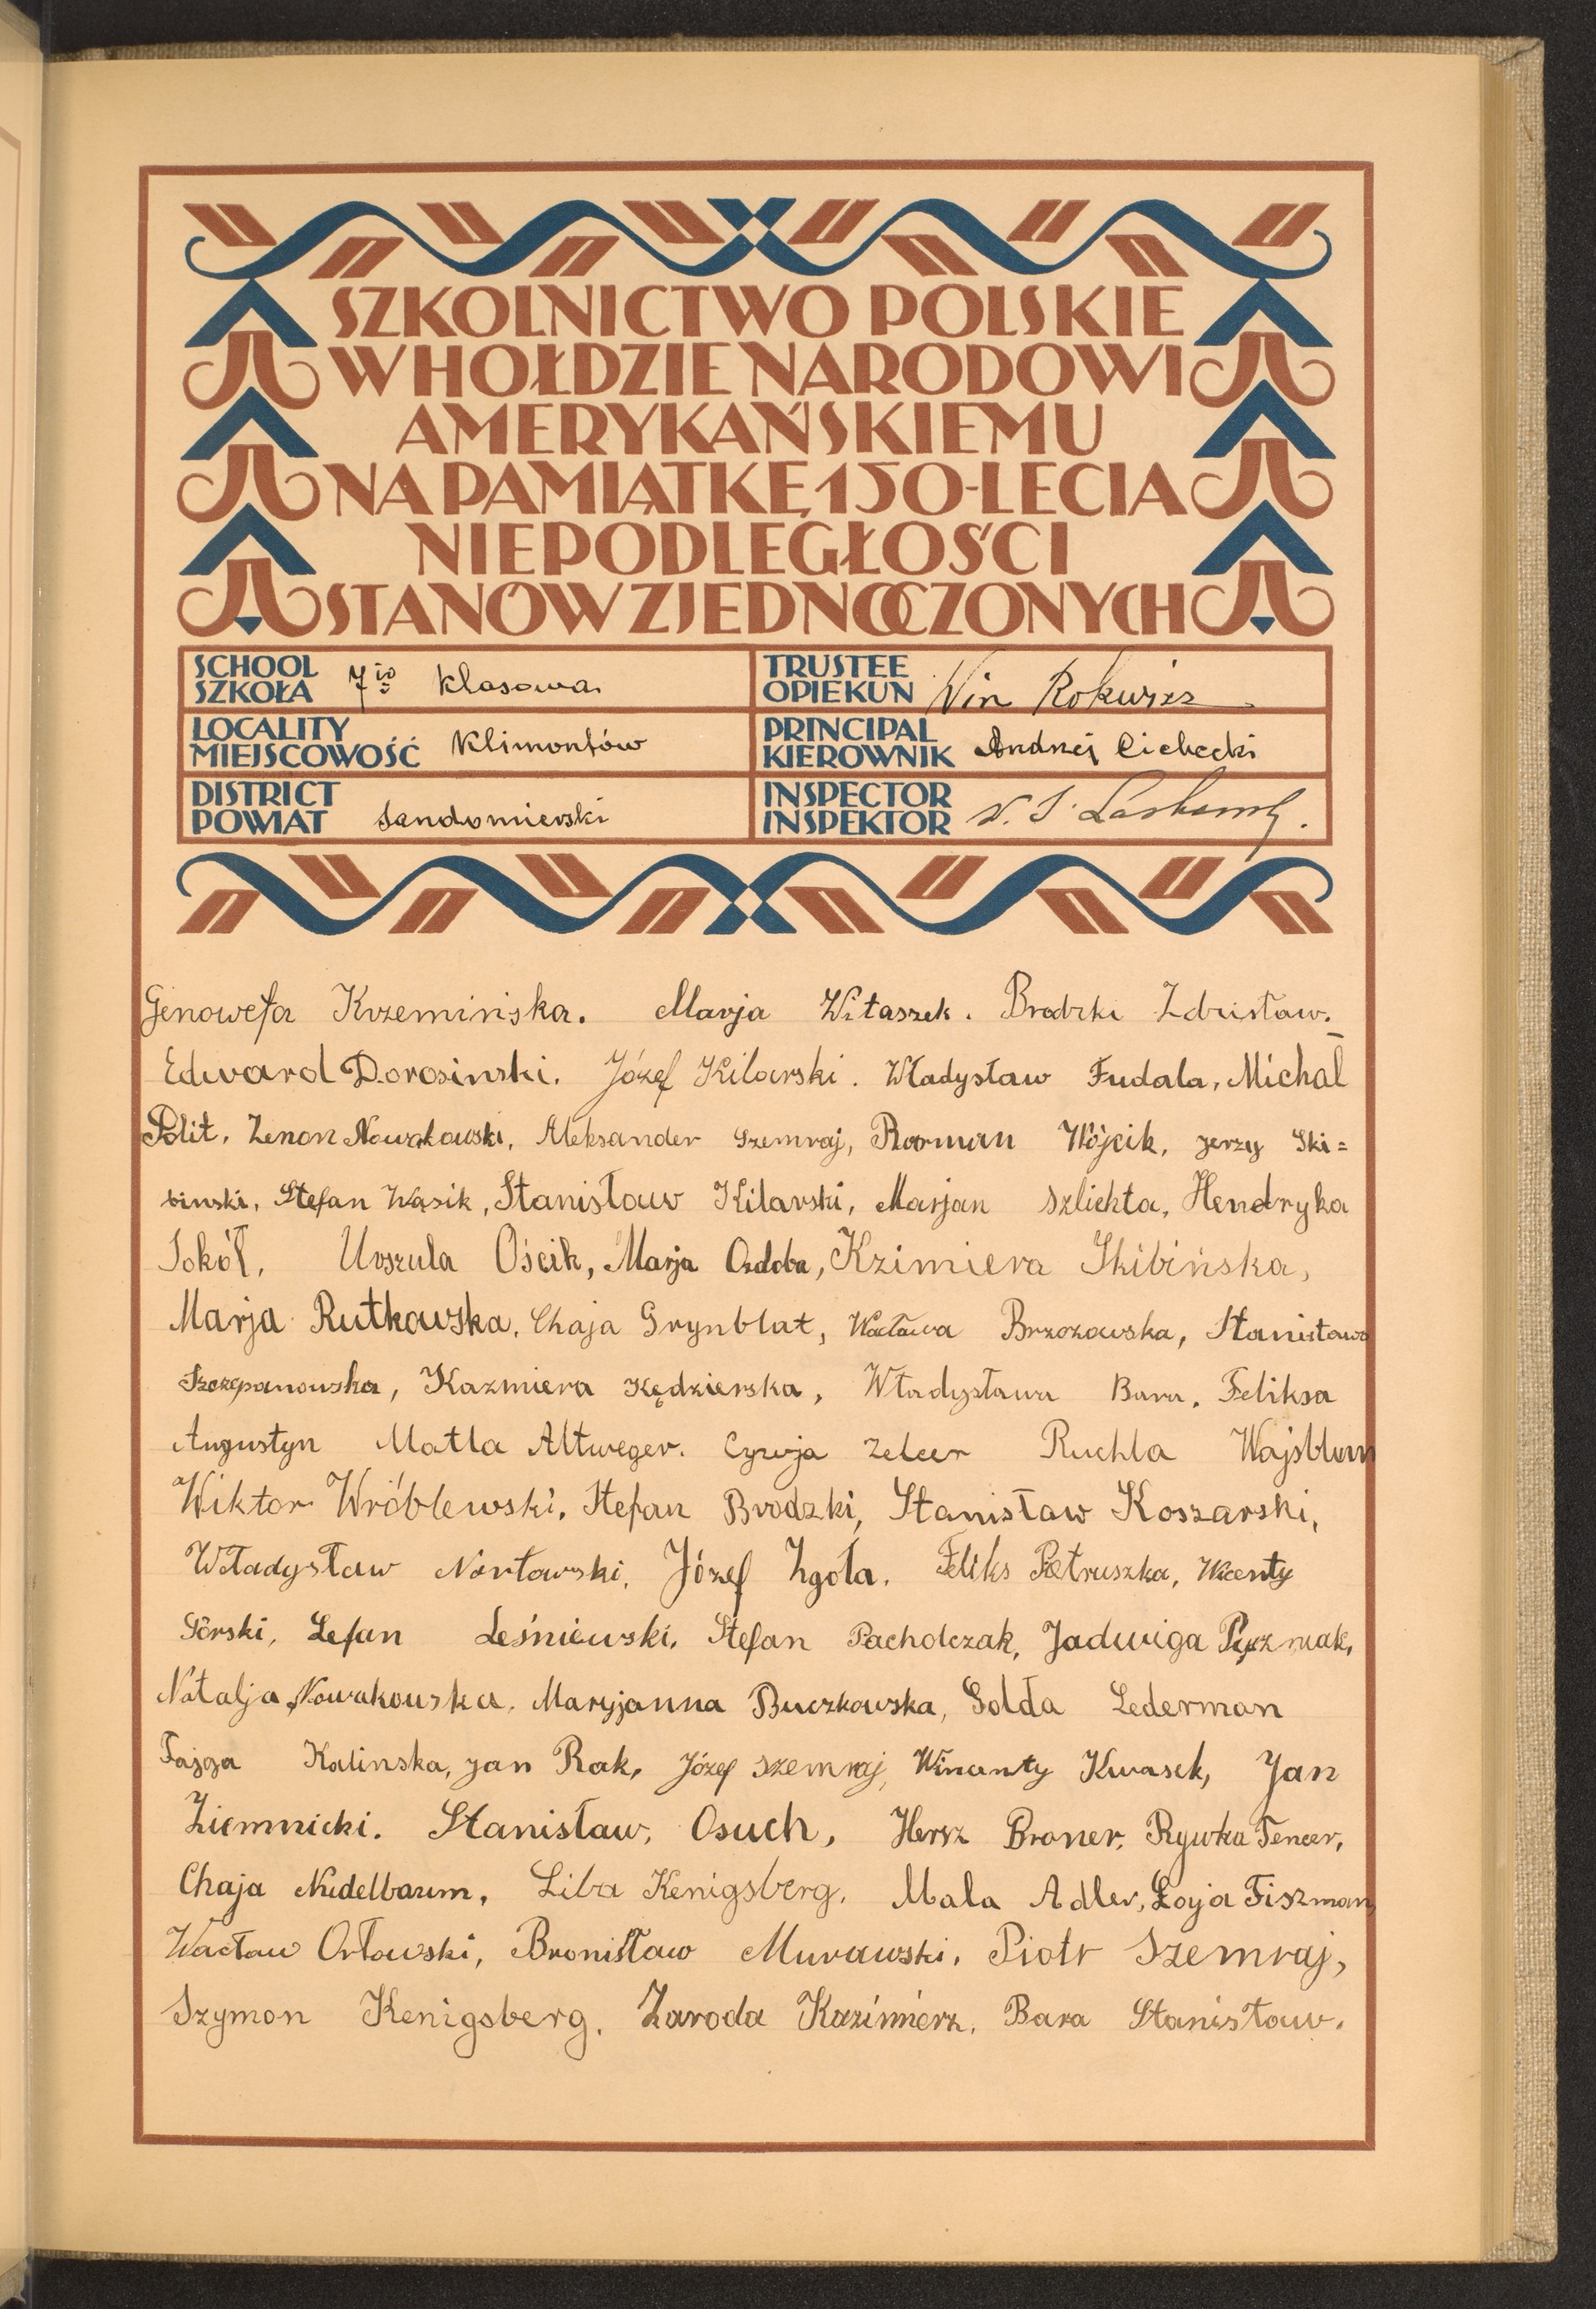 SZKOLNICTWO POLSKIE
W HOŁDZIE NARODOWI
AMERYKAŃSKIEMU
NA PAMIĄTKĘ 150-LECIA
NIEPODLEGŁOŚCI
STANÓW ZJEDNOCZONYCH
SCHOOL
SZKOŁA 7io klasowa
TRUSTEE
OPIEKUN Win
LOCALITY
MIEJSCOWOŚĆ Klimontów
PRINCIPAL
KIEROWNIK Andrzej Cichecki
DISTRICT
POWIAT Sandomierski
INSPECTOR
INSPEKTOR
Genowefa Krzemińska. Marja Witaszek. Brodzki Zdzisław.
Edward Dorosinski. Józef Kilarski. Władysław Fudala, Michał
Polit, Zenon Nowakowski, Aleksander Szemraj, Roman Wójcik, Jerzy Ski=
binski, Stefan Wąsik, Stanisław Kilarski, Marjan Szlichta, Hendryka
Sokół, Urszula Ościk, Marja Ozdoba, Kzimiera Skibińska,
Marja Rutkowska, Chaja Grynblat, Wacława Brzozowska, Stanisława
Szczepanowska, Kazmiera Kędzierska, Władysława Bara, Feliksa
Augustyn Matla Altweger. Cyrwja Zelcer Ruchla Wajsblum
Wiktor Wróblewski, Stefan Brodzki, Stanisław Koszarski,
Władysław Norławski, Józef Zgoła. Feliks Pietruszka, Wicenty
Górski, Lefan Leśniewski, Stefan Pacholczak, Jadwiga
Natalja Nowakowska. Maryjanna Buczkowska, Gołda Lederman
Fajga Kalinska, Jan Rak, Józef Szemraj, Wincenty Kwasek, Jan
Ziemnicki. Stanisław, Osuch, Hersz Broner, Rywka Tencer,
Chaja Nudelbaum, Liba Kenigsberg, Mala Adler, Łoja Fiszman,
Wacław Orłowski, Bronisław Murawski, Piotr Szemraj,
Szymon Kenigsberg, Zaroda Kazimierz, Bara Stanisław.